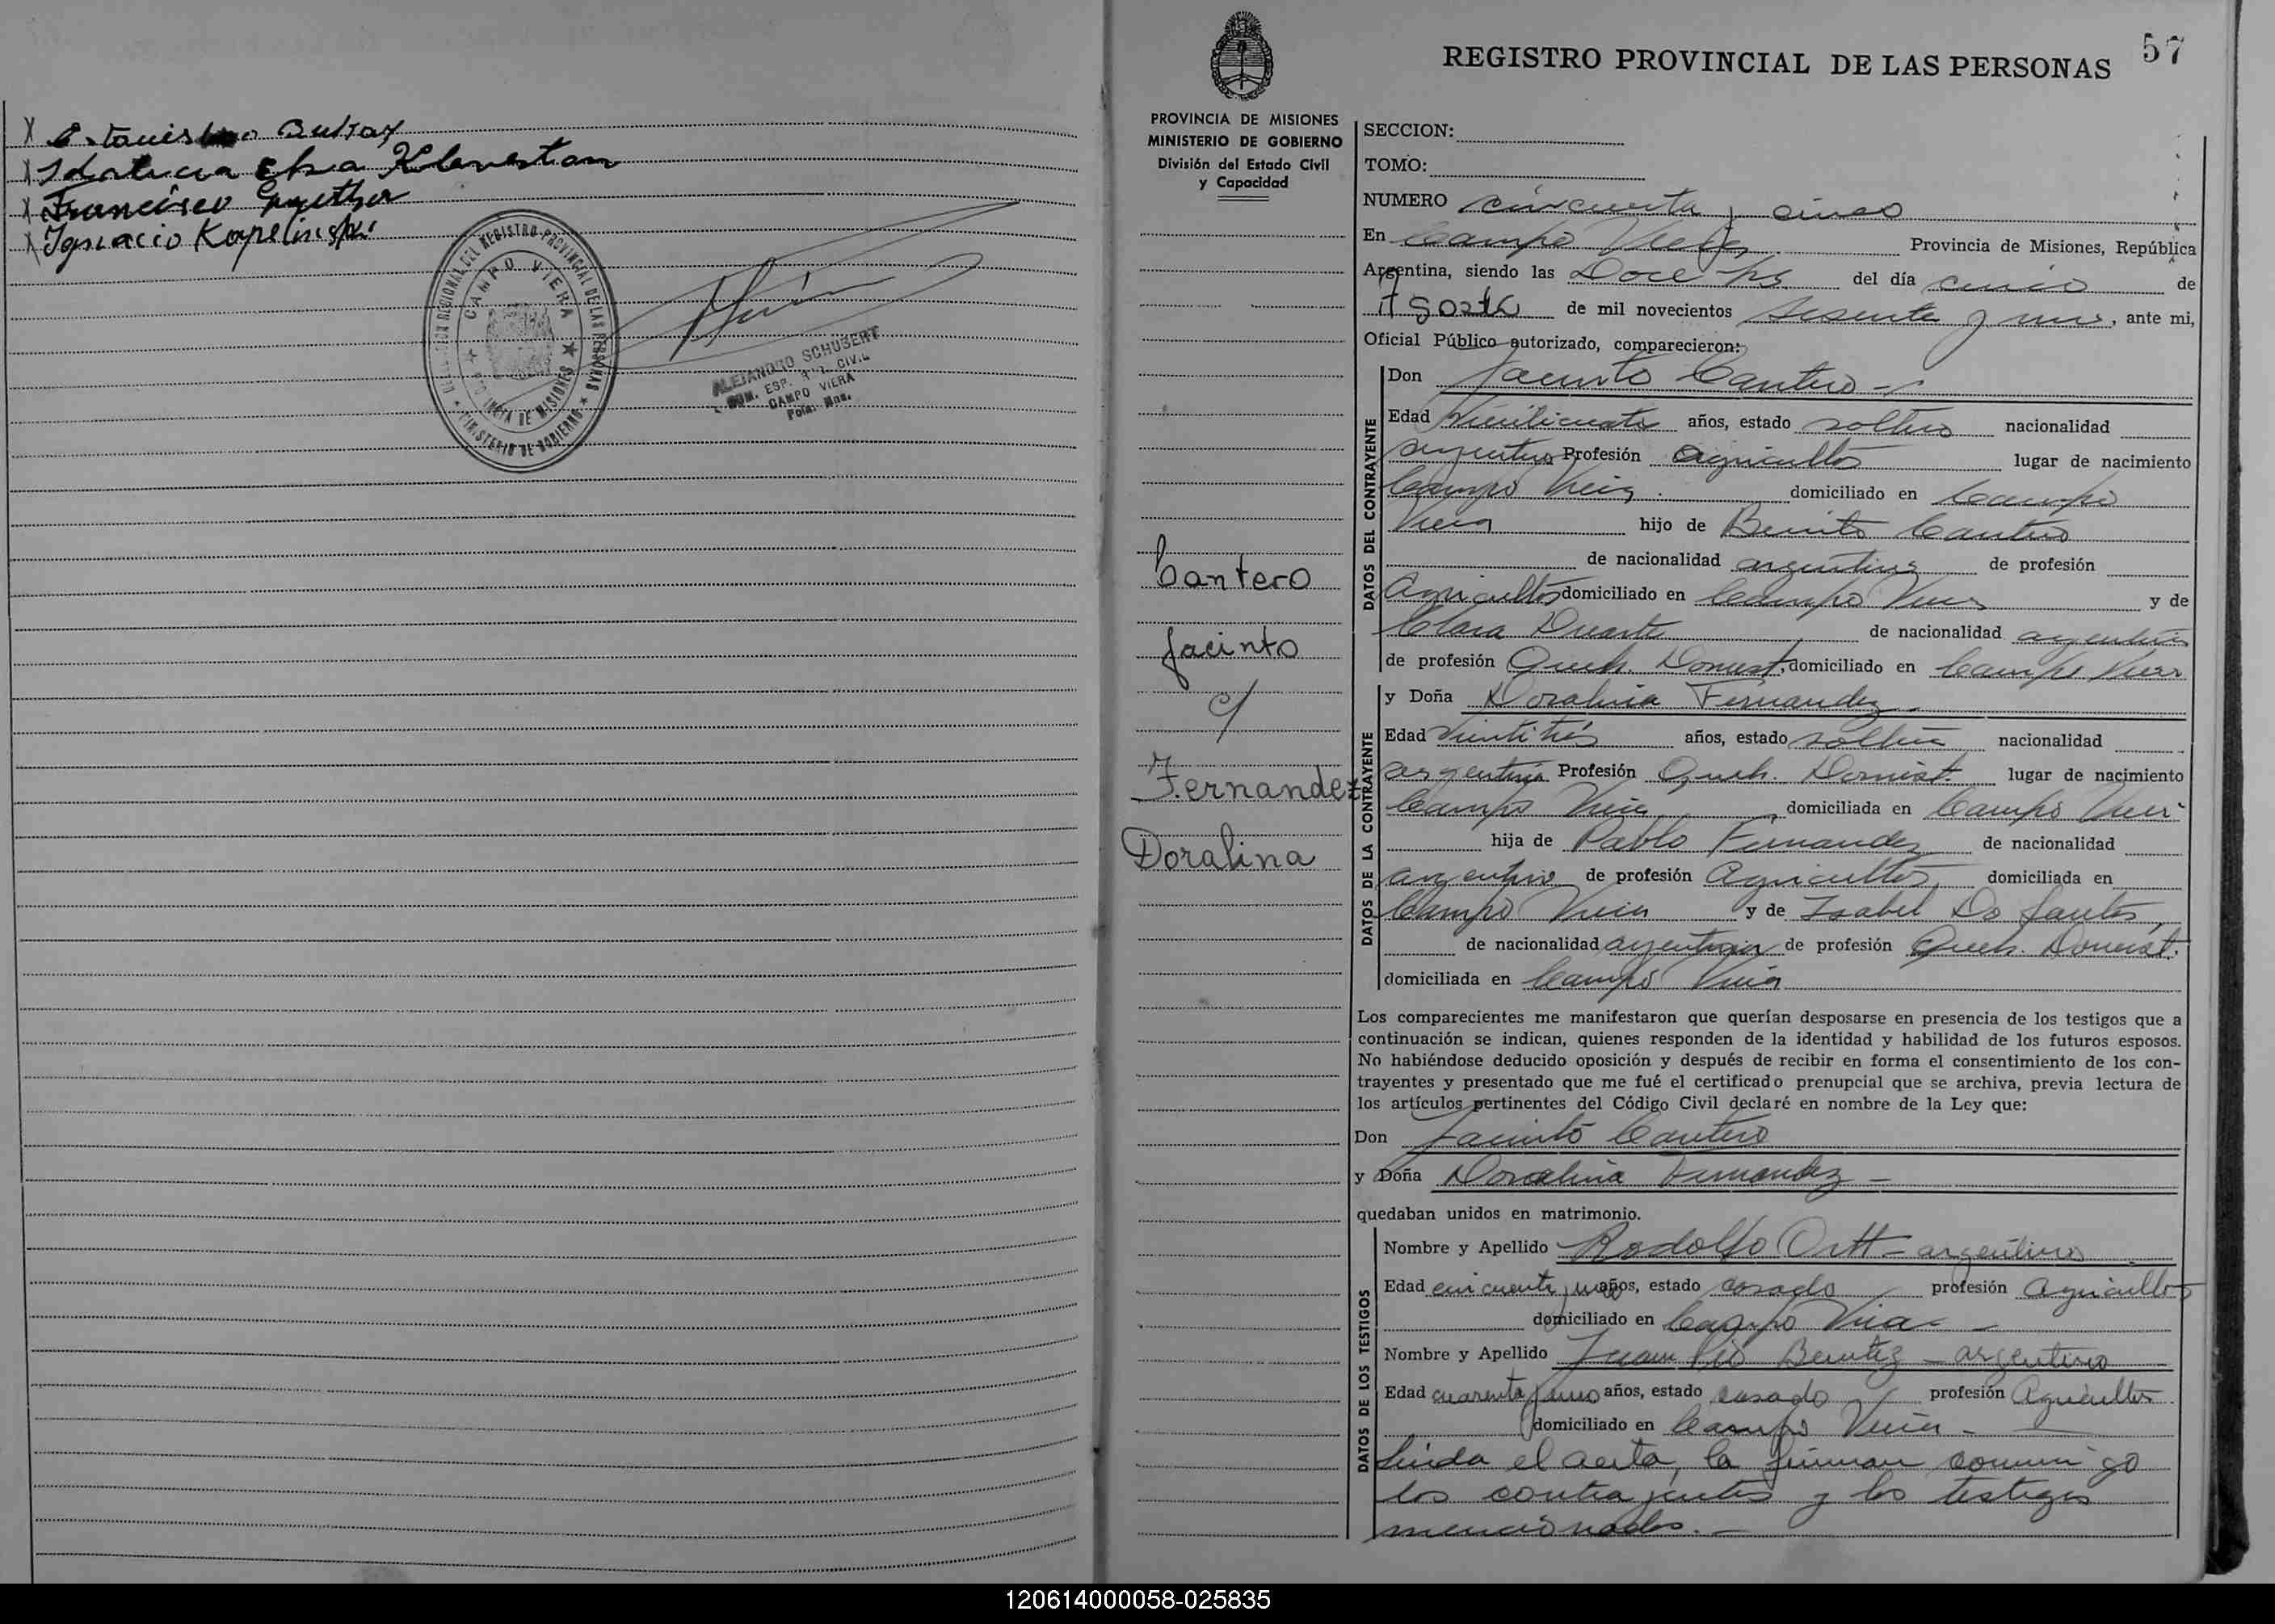 Estanislao Bukay
Idalicia Elsa
Francisco Guether
Ignacio Kapelinski
DELEGACION REGIONAL DEL REGISTRO PROVINCIAL DE LAS PERSONAS
CAMPO VIERA
PROVINCIA DE MISIONES
MINISTERIO DE GOBIERNO
ALEJANDRO SCHUBERT
CAMPO VIERA
Pcia. Mnes.
57
REGISTRO PROVINCIAL DE LAS PERSONAS
PROVINCIA DE MISIONES
MINISTERIO DE GOBIERNO
División del Estado Civil
y Capacidad
Cantero
Jacinto
c/
Fernandez
Doralina
SECCION:
TOMO:
NUMERO cincuenta y cinco
En Campo Viera Provincia de Misiones, República
Argentina, siendo las Doce hs. del día cinco de
Agosto de mil novecientos sesenta y uno, ante mi,
Oficial Público autorizado, comparecieron:
DATOS DEL CONTRAYENTE
Don Jacinto Cantero
Edad Veinticuatro años, estado soltero nacionalidad
argentino Profesión Agricultor lugar de nacimiento
Campo Viera domiciliado en Campo
Viera hijo de Benito Cantero
de nacionalidad argentino de profesión
Agricultor domiciliado en Campo Viera y de
Clara Duarte de nacionalidad argentina
de profesión Queh. Domest. domiciliado en Campo Viera
DATOS DE LA CONTRAYENTE
y Doña Doralina Fernandez
Edad Veintitrés años, estado soltera nacionalidad
argentina Profesión Queh. Domést. lugar de nacimiento
Campo Viera domiciliada en Campo Viera
hija de Pablo Fernandez de nacionalidad
argentino de profesión Agricultor, domiciliada en
Campo Viera y de Isabel Do Santos,
de nacionalidad argentina de profesión Queh. Domést.
domiciliada en Campo Viera
Los comparecientes me manifestaron que querían desposarse en presencia de los testigos que a
continuación se indican, quienes responden de la identidad y habilidad de los futuros esposos.
No habiéndose deducido oposición y después de recibir en forma el consentimiento de los con-
trayentes y presentado que me fué el certificado prenupcial que se archiva, previa lectura de
los artículos pertinentes del Código Civil declaré en nombre de la Ley que:
Don Jacinto Cantero
y Doña Doralina Fernandez
quedaban unidos en matrimonio.
DATOS DE LOS TESTIGOS
Nombre y Apellido Rodolfo Ortt - argentino
Edad cincuenta y uno años, estado casado profesión Agricultor
domiciliado en Campo Viera
Nombre y Apellido Juan Pio Benitez - argentino
Edad cuarenta y uno años, estado casado profesión Agricultor
domiciliado en Campo Viera
Leída el acta, la firman conmigo
los contrayentes y los testigos
mencionados.
120614000058-025835